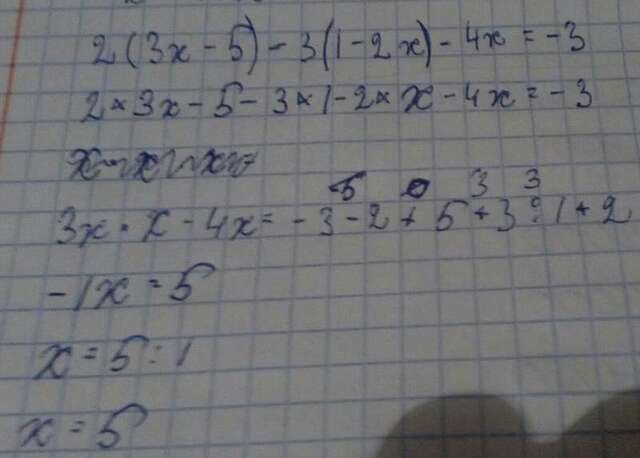 2(3x - 5) - 3(1 - 2x) - 4x = -3
2 × 3x - 5 - 3 × 1 - 2 × x - 4x = -3
-5 0 3 3
3x · x - 4x = -3 - 2 + 5 + 3 : 1 + 2
-1x = 5
x = 5 : 1
x = 5